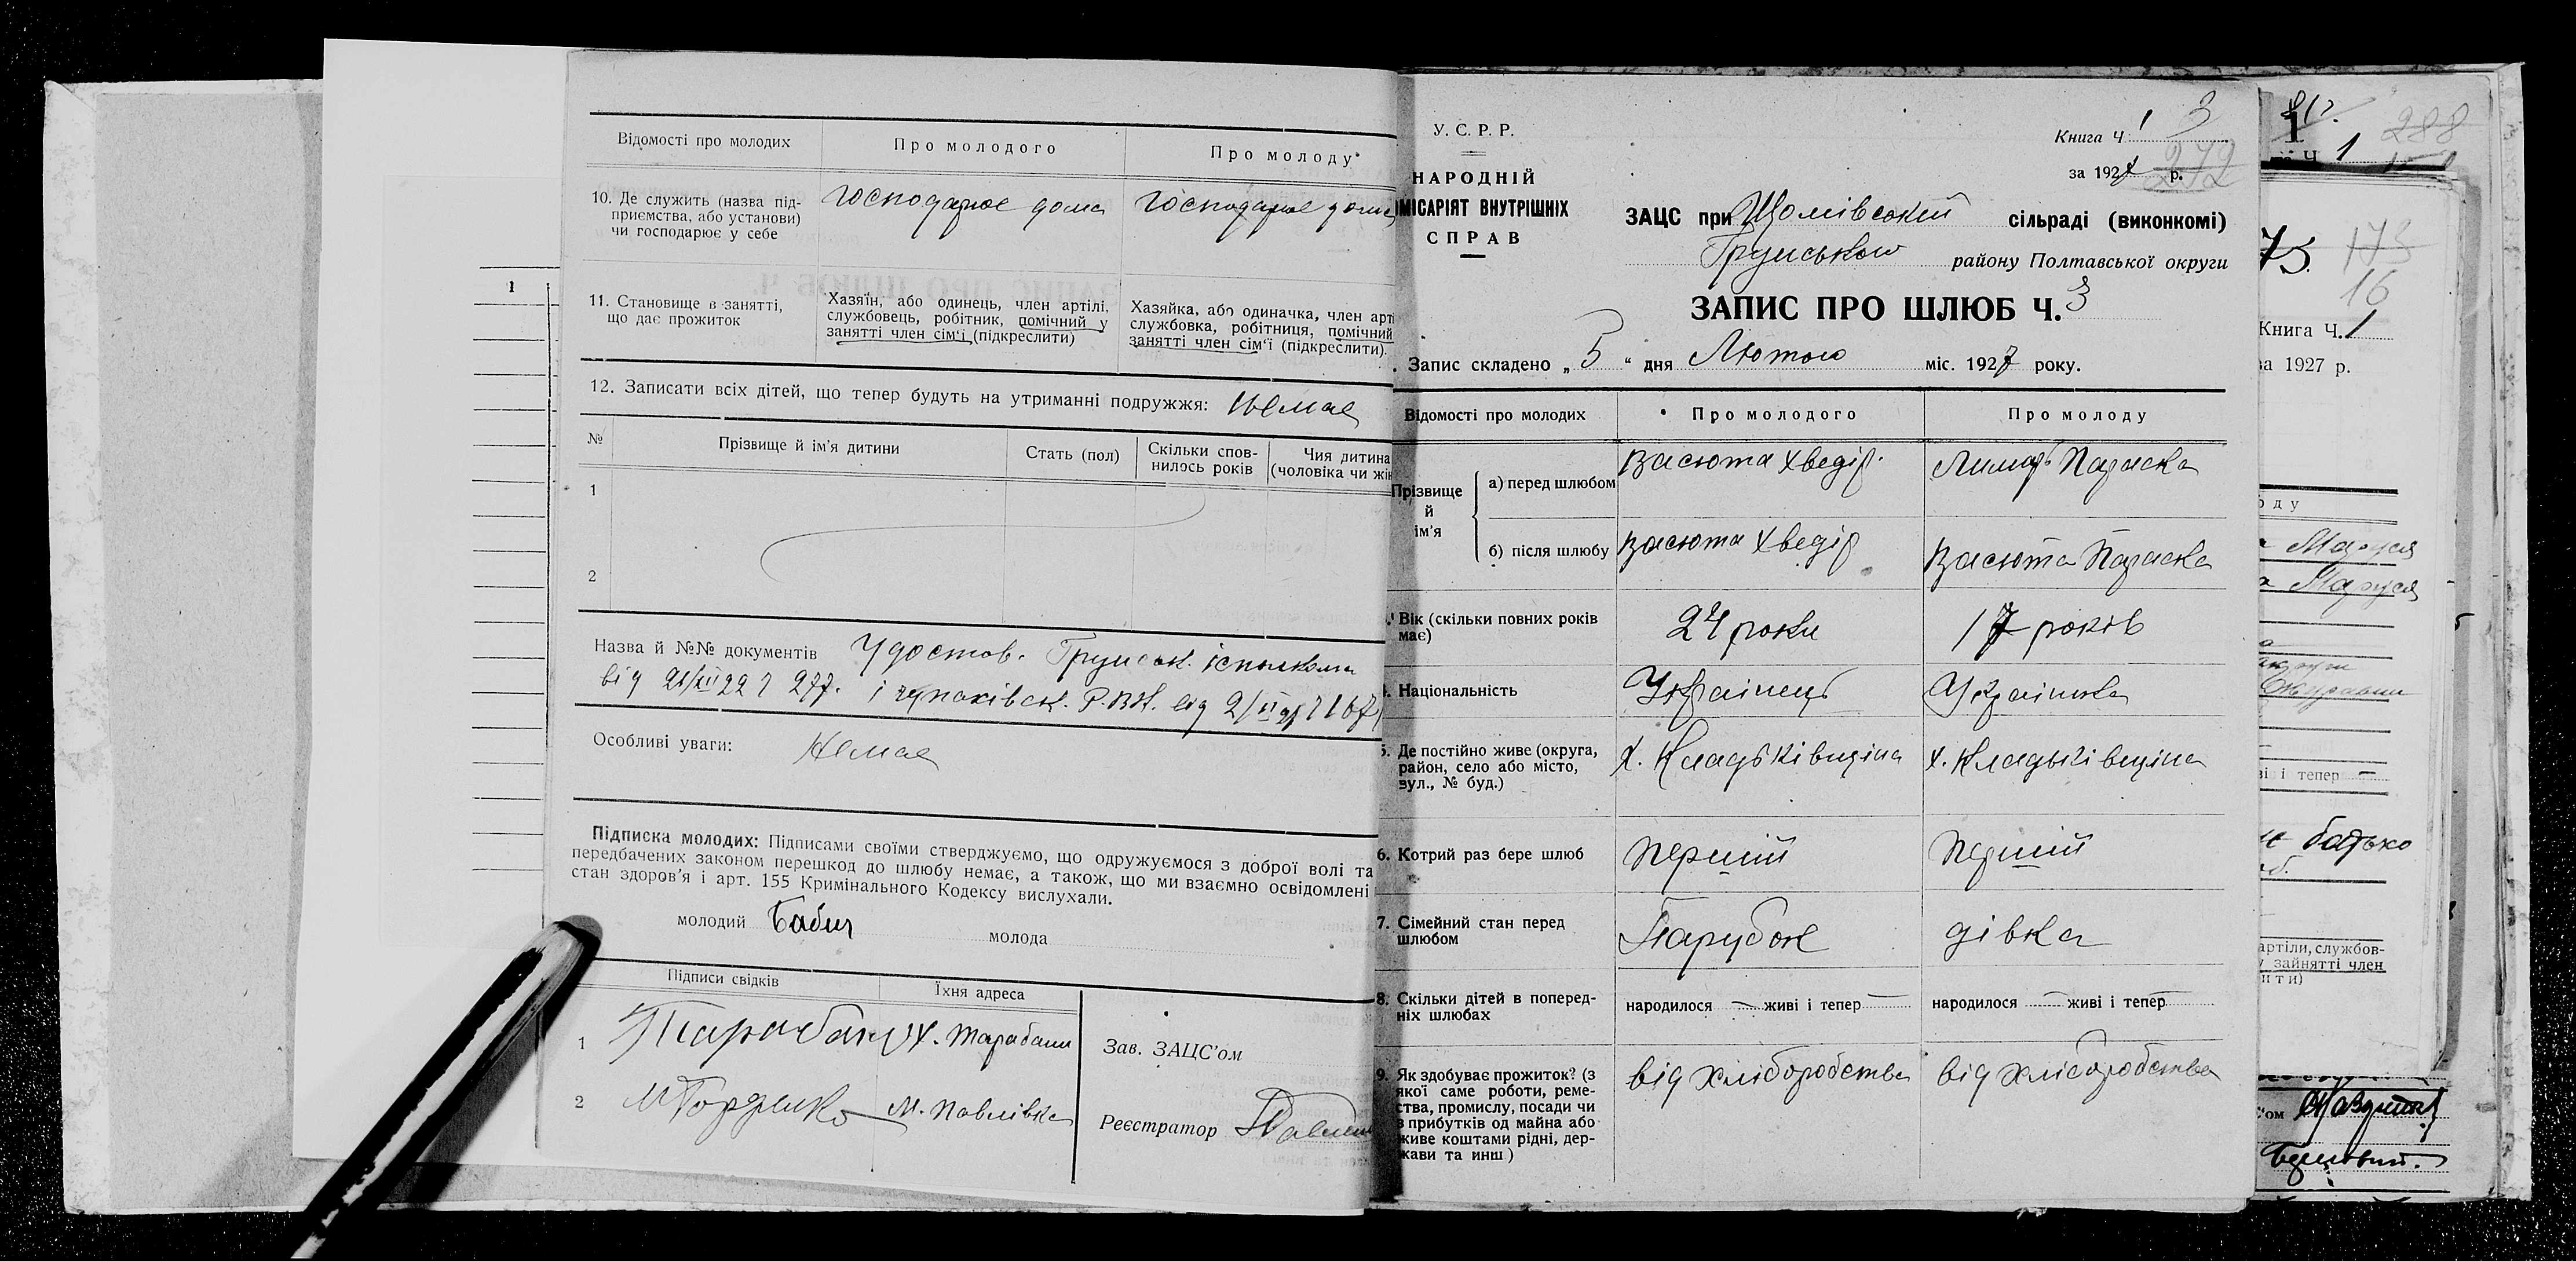 Відомості про молодих
Про молодого
Про молоду
10. Де служить (назва під-
приємства, або установи)
чи господарює у себе
господарює дома
господарює дома
11. Становище в занятті,
що дає прожиток
Хазяїн, або одинець, член артілі,
службовець, робітник, помічний у
занятті член сім'ї (підкреслити)
Хазяйка, або одиначка, член арті
службовка, робітниця, помічний
занятті член сім'ї (підкреслити).
12. Записати всіх дітей, що тепер будуть на утриманні подружжя: Немає
№
Прізвище й ім'я дитини
Стать (пол)
Скільки спов-
нилось років
Чия дитина
(чоловіка чи жін
1
2
Назва й №№ документів Удостов.
від
Особливі уваги: Немає
Підписка молодих: Підписами своїми стверджуємо, що одружуємося з доброї волі та
передбачених законом перешкод до шлюбу немає, а також, що ми взаємно освідомлені
стан здоров'я і арт. 155 Кримінального Кодексу вислухали.
молодий Бабич
молода
Підписи свідків
Їхня адреса
1 Тарабан х. Тарабани
2 М. Павлівка
Зав. ЗАЦС'ом
Реєстратор
1
У. С. Р. Р.
НАРОДНІЙ
МІСАРІЯТ ВНУТРІШНІХ
СПРАВ
Книга Ч. 1 3
за 1927 р. 272
ЗАЦС при сільраді (виконкомі)
Грунського району Полтавської округи
ЗАПИС ПРО ШЛЮБ Ч. 3
Запис складено „ 5 " дня Лютого міс. 1927 року.
Відомості про молодих
Про молодого
Про молоду
Прізвище
й
ім'я
а) перед шлюбом
Васюта Хведір
Лимарь Параска
б) після шлюбу
Васюта Хведір
Васюта Параска
Вік (скільки повних років
має)
24 роки
17 років
Національність
Українець
Українка
5. Де постійно живе (округа,
район, село або місто,
вул., № буд.)
х. Кладьківщина
х. Кладьківщина
6. Котрий раз бере шлюб
Перший
Перший
7. Сімейний стан перед
шлюбом
Парубок
дівка
8. Скільки дітей в поперед-
ніх шлюбах
народилося — живі і тепер —
народилося — живі і тепер —
9. Як здобуває прожиток? (з
якої саме роботи, реме-
ства, промислу, посади чи
з прибутків од майна або
живе коштами рідні, дер-
жави та инш.)
від хліборобства
від хліборобства
1
288
Ч. 1
75.
173
16
Книга Ч. 1
за 1927 р.
оду
Маруся
Маруся
і тепер —
батько
артіли, службов-
у зайнятті член
ити)
'ом